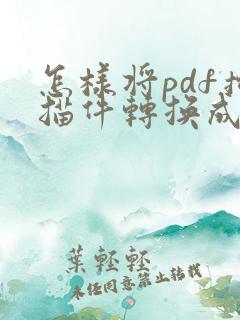 怎樣將pdf掃
描件轉換成
葉輕輕
未经同意禁止转载